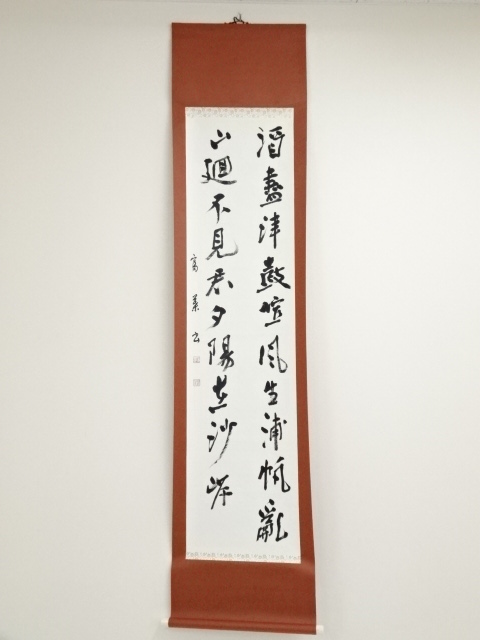 酒盡津鼓喧風生浦帆亂
山廻不見君夕陽在沙岸